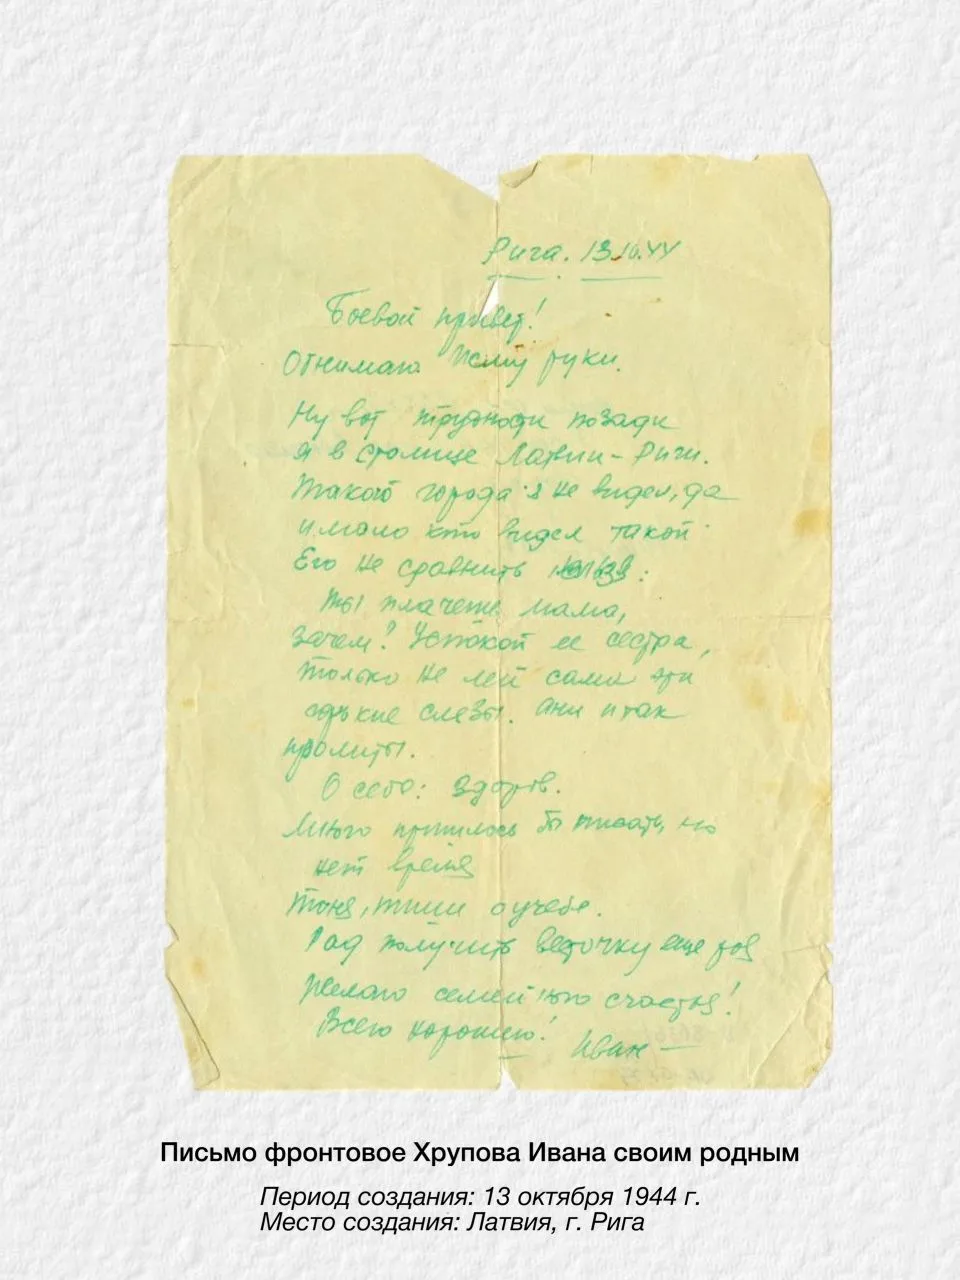 Рига. 13.10.44
Боевой привет!
Отнимаю Жму руки.
Ну вот трудности позади
я в столице Латвии - Риги.
Такого города я не видел, да
и мало кто видел такой
Его не сравнить :
Ты плачешь мама,
Зачем? Успокой ее сестра,
только не лей сама эти
горькие слезы. они и так
пролиты.
О себе: Здоров.
Много пришлось бы писать, но
нет время
Тоня, пиши о учебе.
Рад получить весточку еще раз
Желаю семейного счастья!
Всего хорошего!
Иван
Письмо фронтовое Хрупова Ивана своим родным
Период создания: 13 октября 1944 г.
Место создания: Латвия, г. Рига